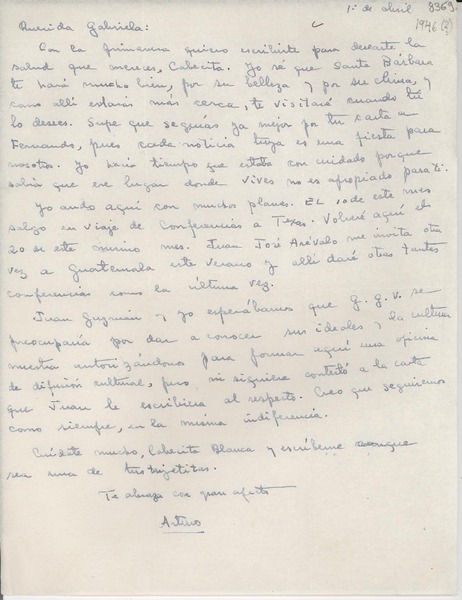 1º de abril 8369
1946 (?)
Querida Gabriela:
Con la primavera quiero escribirte para desearte la
salud que mereces, Cabecita. Yo sé que Santa Bárbara
te hará mucho bien, por su belleza y por su clima, y
como allí estarás más cerca, te visitaré cuando tú
lo desees. Supe que seguías ya mejor por tu carta a
Fernando, pues cada noticia tuya es una fiesta para
nosotros. Yo hacía tiempo que estaba con cuidado porque
sabía que ese lugar donde vives no es apropiado para ti.
Yo ando aquí con muchos planes. El 10 de este mes
salgo en viaje de conferencias a Texas. Volveré aquí el
20 de este mismo mes. Juan José Arévalo me invita otra
vez a Guatemala este verano y allí daré otras tantas
conferencias como la última vez.
Juan Guzmán y yo esperábamos que G. G. V. se
preocuparía por dar a conocer sus ideales y la cultura
nuestra autorizándonos para formar aquí una oficina
de difusión cultural, pero ni siquiera contestó a la carta
que Juan le escribiera al respecto. Creo que seguiremos
como siempre, en la misma indiferencia.
Cuídate mucho, Cabecita Blanca y escríbeme aunque
sea una de tus tarjetitas.
Te abraza con gran afecto
Arturo